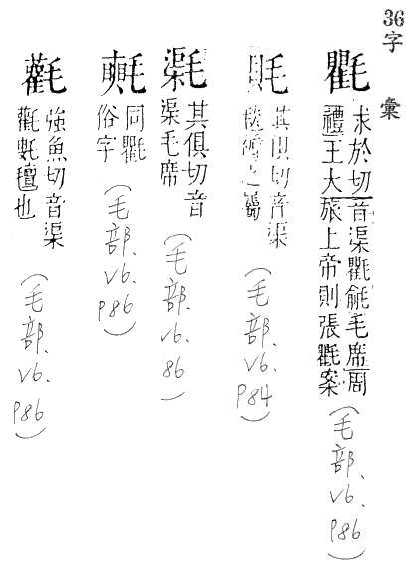 36字 彙
氍
求於切音渠氍毹毛席周
禮王大旅上帝則張氍案
(毛部.V6.P86)
其俱切音渠
之屬
(毛部.V6.P84)
其俱切音
渠毛席
(毛部.V6.86)
同氍
俗字
(毛部.V6.P86)
強魚切音渠
氈也
(毛部.V6.P86)